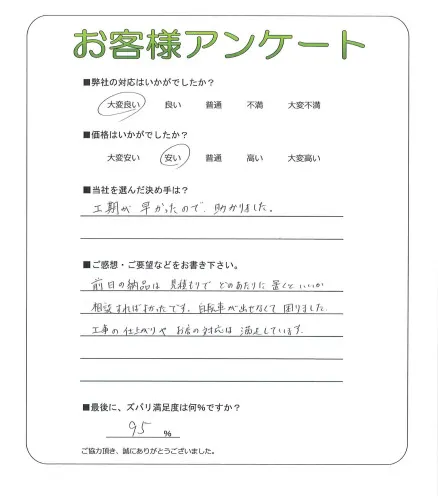 お客様アンケート
■弊社の対応はいかがでしたか?
大変良い 良い 普通 不満 大変不満
■価格はいかがでしたか?
大変安い 安い 普通 高い 大変高い
■当社を選んだ決め手は?
工期が早かったので、助かりました。
■ご感想・ご要望などをお書き下さい。
前日の納品は見積もりでどのあたりに置くといいか
相談すればよかったです。自転車が出せなくて困りました。
工事の仕上がりやお店の対応は満足しています。
■最後に、ズバリ満足度は何%ですか?
95 %
ご協力頂き、誠にありがとうございました。